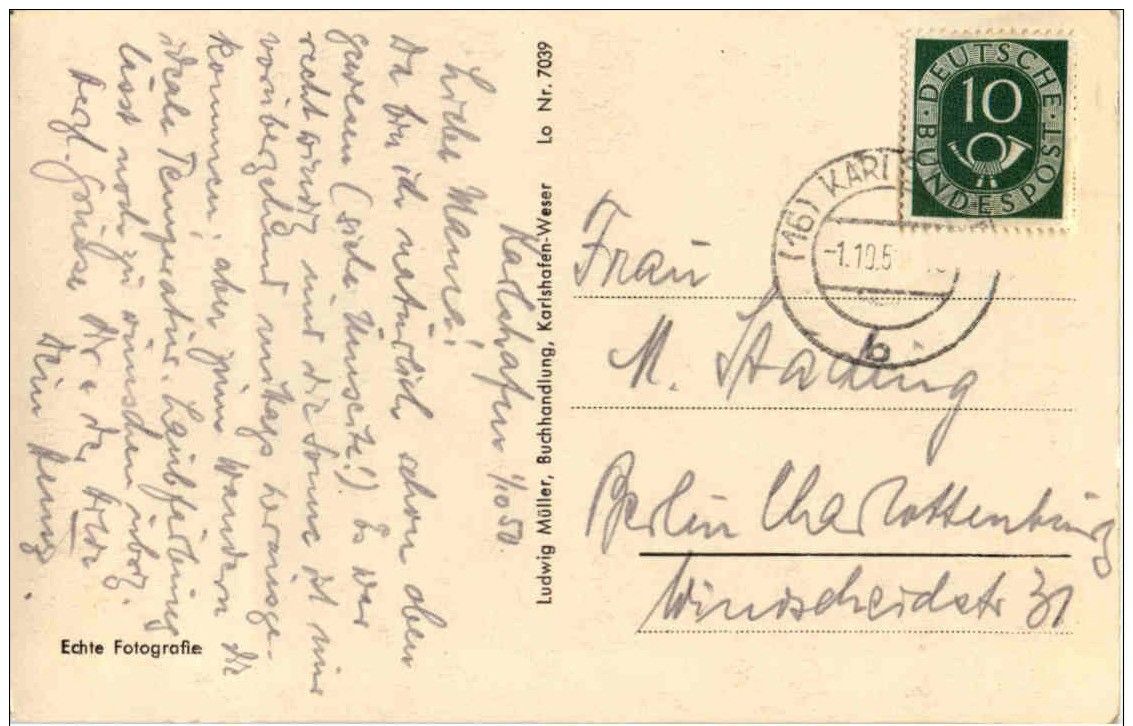 Karlshafen 1/10 50.
Liebe Mama!
Da bin ich natürlich schon oben
gewesen (siehe Umseite!) Es war
recht windig und die Sonne ist nur
vorübergehend mittags herausge-
kommen, aber zum Wandern die
ideale Temperatur. Laubfärbung
lässt noch zu wünschen übrig.
Herzl. Grüsse Dir &
Dein
Echte Fotografie
Ludwig Müller, Buchhandlung, Karlshafen-Weser Lo Nr. 7039
DEUTSCHE BUNDESPOST
10
(16) KARL
-1.10.5
b
Frau
M. Stading
Berlin Charlottenburg
Windscheidstr 31